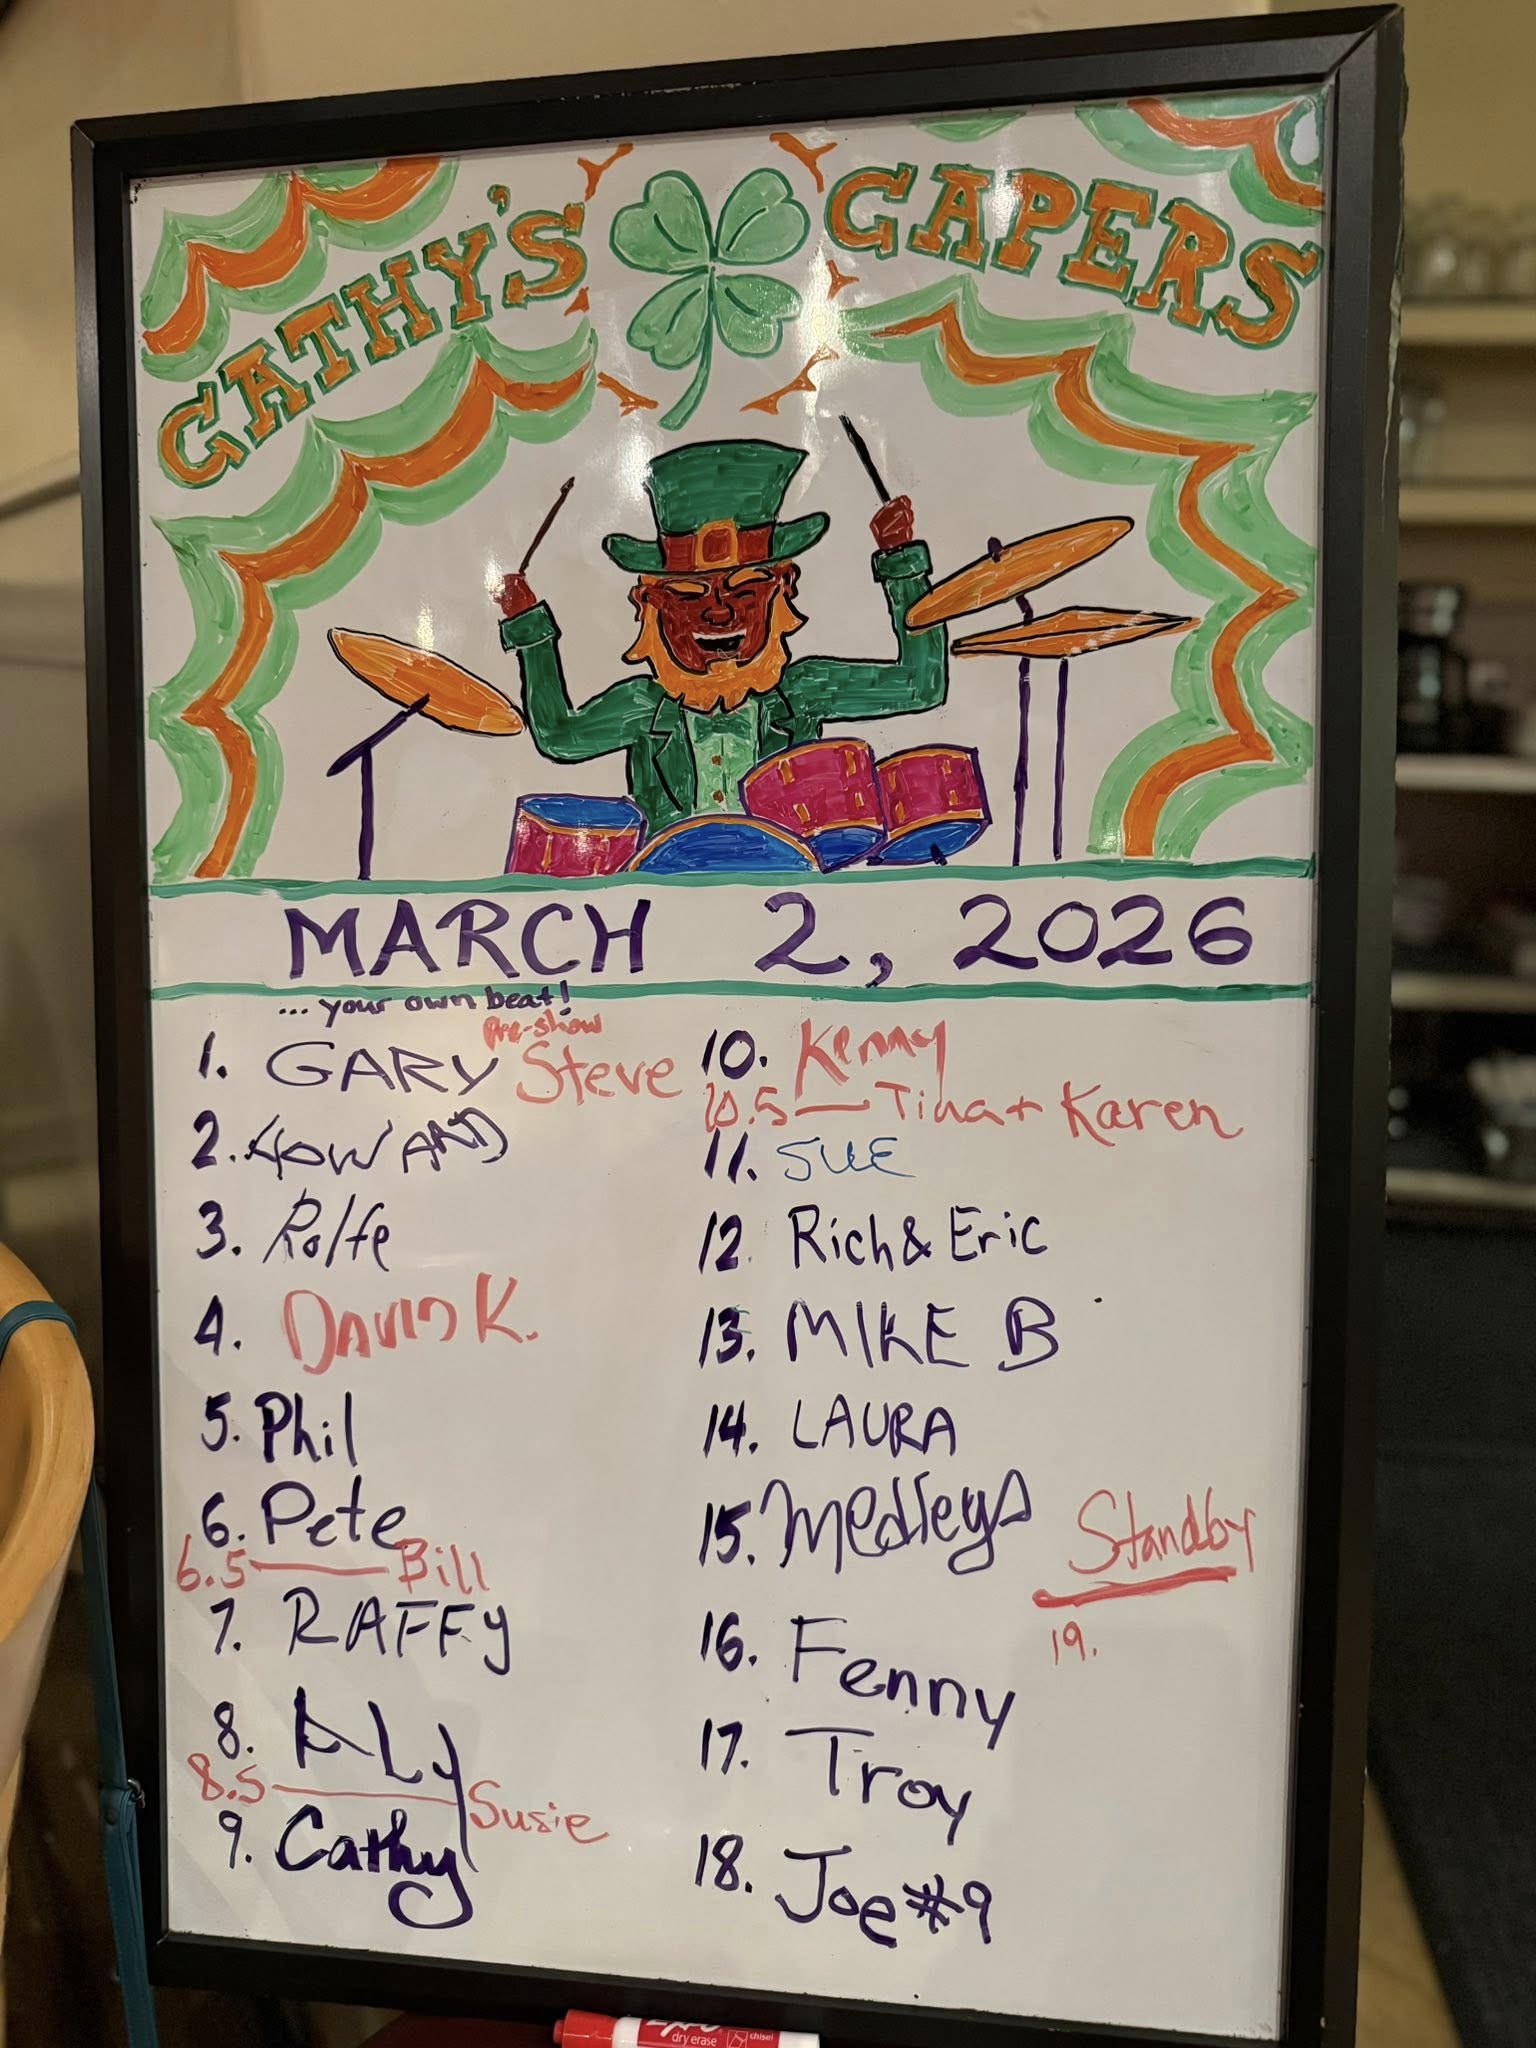 CATHY'S CAPERS
MARCH 2, 2026
... your own beat!
Pre-show
1. GARY Steve
2. HOWARD
3. Rolfe
4. DAVID K.
5. Phil
6. Pete
6.5 — Bill
7. RAFFY
8. ALy
8.5 — Susie
9. Cathy
10. Kenny
10.5 — Tina + Karen
11. SUE
12. Rich & Eric
13. MIKE B
14. LAURA
15. Medleys
16. Fenny
17. Troy
18. Joe #9
Standby
19.
EXPO
dry erase chisel